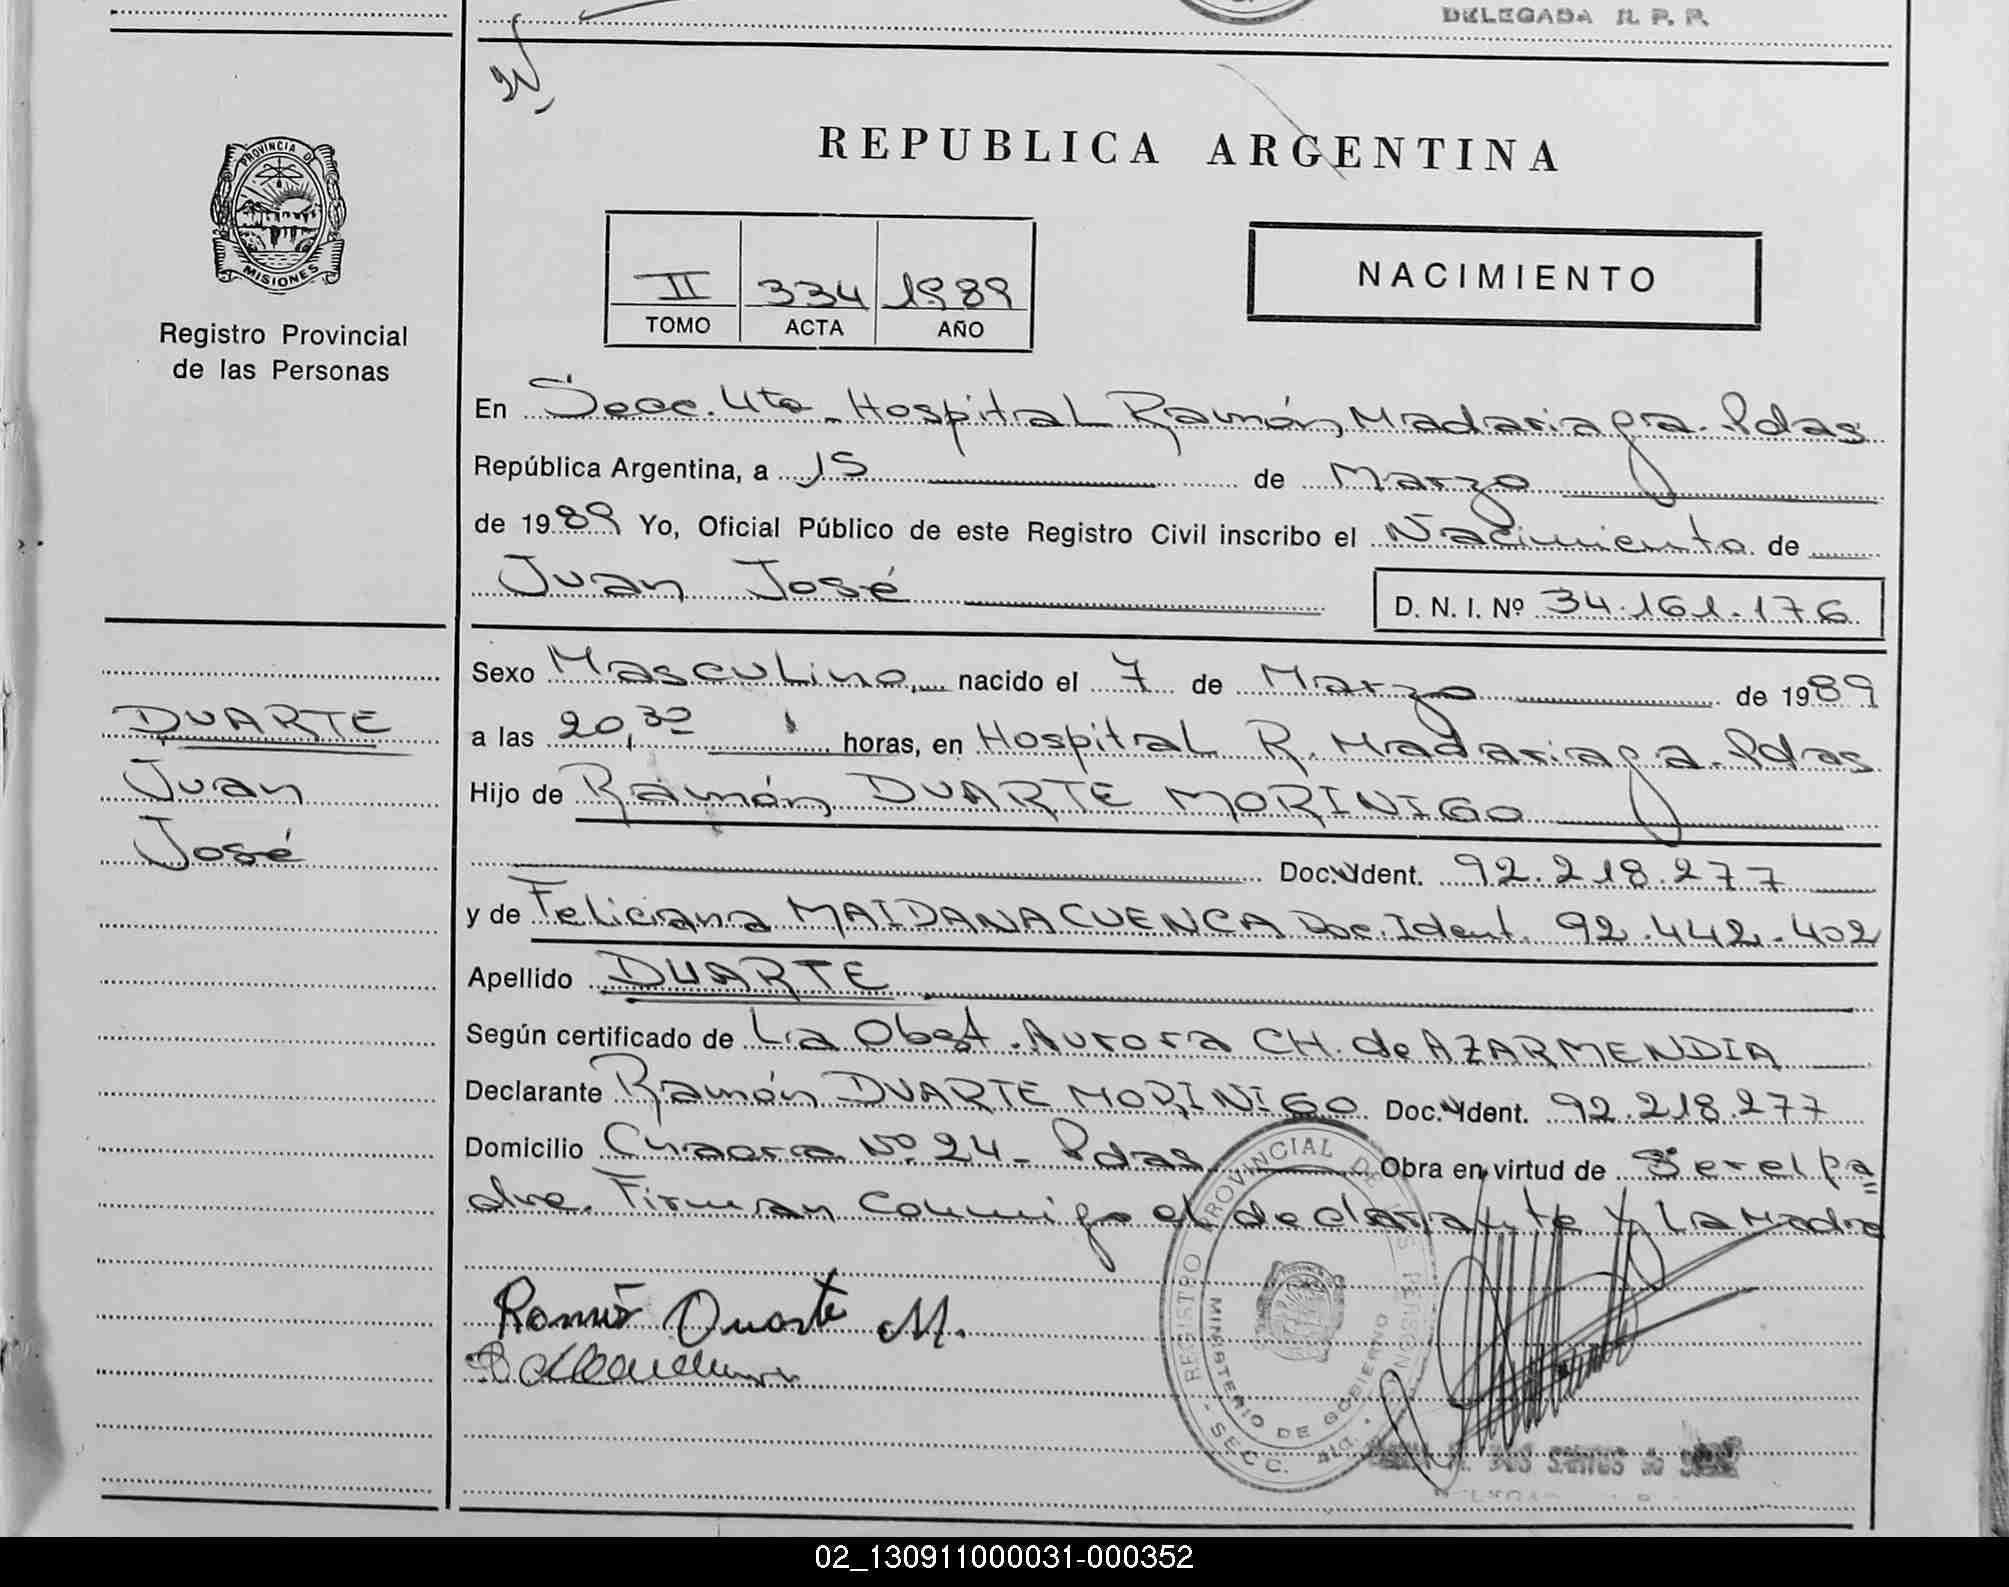 DELEGADA R. P. P.
REPUBLICA ARGENTINA
PROVINCIA DE
MISIONES
Registro Provincial
de las Personas
II 334 1989
TOMO ACTA AÑO
NACIMIENTO
En Secc. 4ta. Hospital Ramón Madariaga. Pdas
República Argentina, a 15 de Marzo
de 1989 Yo, Oficial Público de este Registro Civil inscribo el Nacimiento de
Juan José
D. N. I. Nº 34.161.176
DUARTE
Juan
José
Sexo Masculino, nacido el 7 de Marzo de 1989
a las 20,30 horas, en Hospital R. Madariaga. Pdas
Hijo de Ramón DUARTE MORINIGO
Doc. Ident. 92.218.277
y de Feliciana MAIDANA CUENCA Doc. Ident. 92.442.402
Apellido DUARTE
Según certificado de La Obst. Aurora CH. de AZARMENDIA
Declarante Ramón DUARTE MORINIGO Doc. Ident. 92.218.277
Domicilio Chacra Nº 24 - Pdas Obra en virtud de Ser el pa
dre. Firman conmigo el declarante y La Madre
Ramón Duarte M.
REGISTRO PROVINCIAL DE LAS PERSONAS
MINISTERIO DE GOBIERNO
- SECC. 4ta. -
DOS SANTOS de
02_130911000031-000352